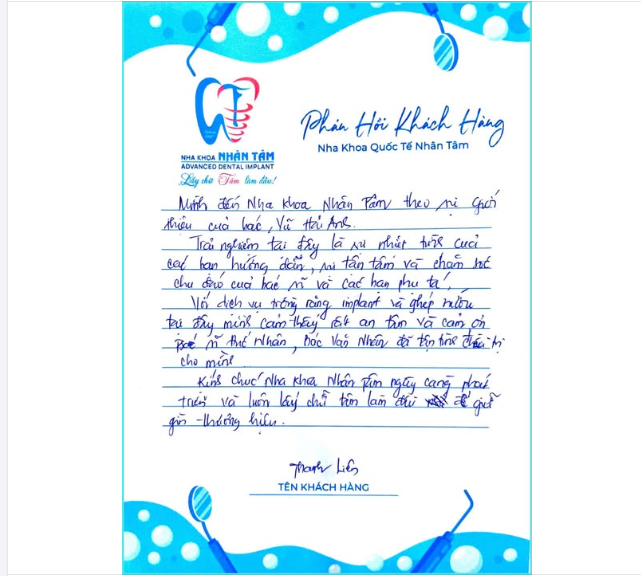 Phản Hồi Khách Hàng
Nha Khoa Quốc Tế Nhân Tâm
NHA KHOA NHÂN TÂM
ADVANCED DENTAL IMPLANT
Lấy chữ Tâm làm đầu!
Mình đến Nha Khoa Nhân Tâm theo sự giới
thiệu của bác, Vũ Hải Anh.
Trải nghiệm tại đây là sự nhiệt tình của
các bạn hướng dẫn, sự tận tâm và chăm sóc
chu đáo của bác sĩ và các bạn phụ tá.
Với dịch vụ trồng răng implant và ghép nướu
tại đây mình cảm thấy rất an tâm và cảm ơn
sĩ thế Nhân, Bác Văn Nhân đã tận tình điều trị
cho mình.
Kính chúc Nha Khoa Nhân Tâm ngày càng phát
triển và luôn lấy chữ tâm làm đầu để giữ
gìn thương hiệu.
Thanh Liên
TÊN KHÁCH HÀNG